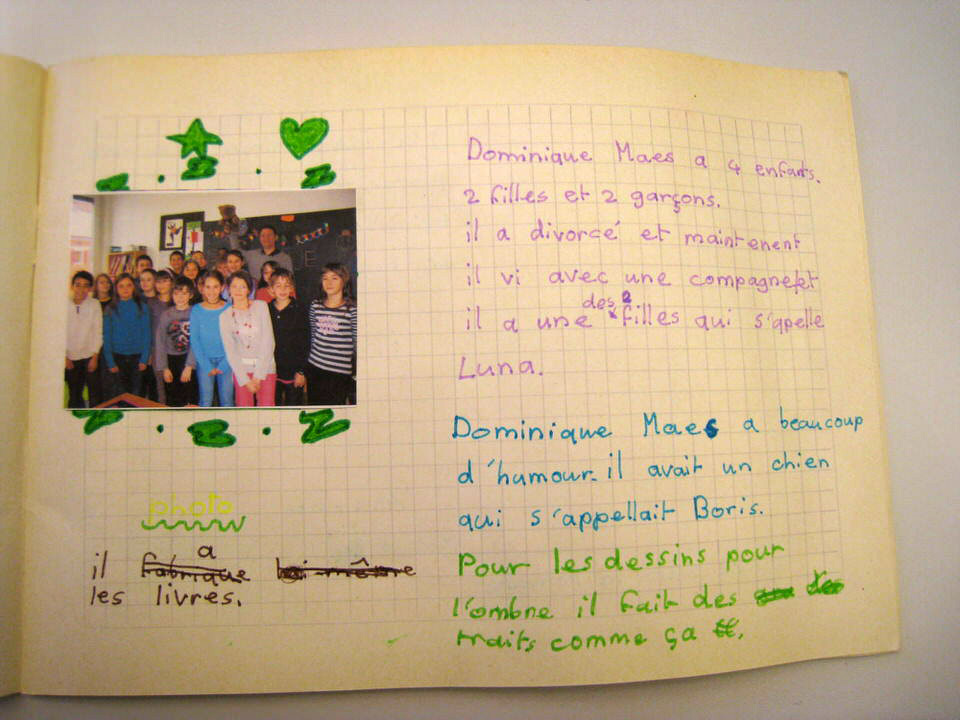 photo
il fabrique a lui-même
les livres.
Dominique Maes a 4 enfants.
2 filles et 2 garçons.
il a divorcé et maintenent
il vi avec une compagne,et
il a une des 2 filles qui s'apelle
Luna.
Dominique Maes a beaucoup
d'humour. il avait un chien
qui s'appellait Boris.
Pour les dessins pour
l'ombne il fait des
traits comme ça